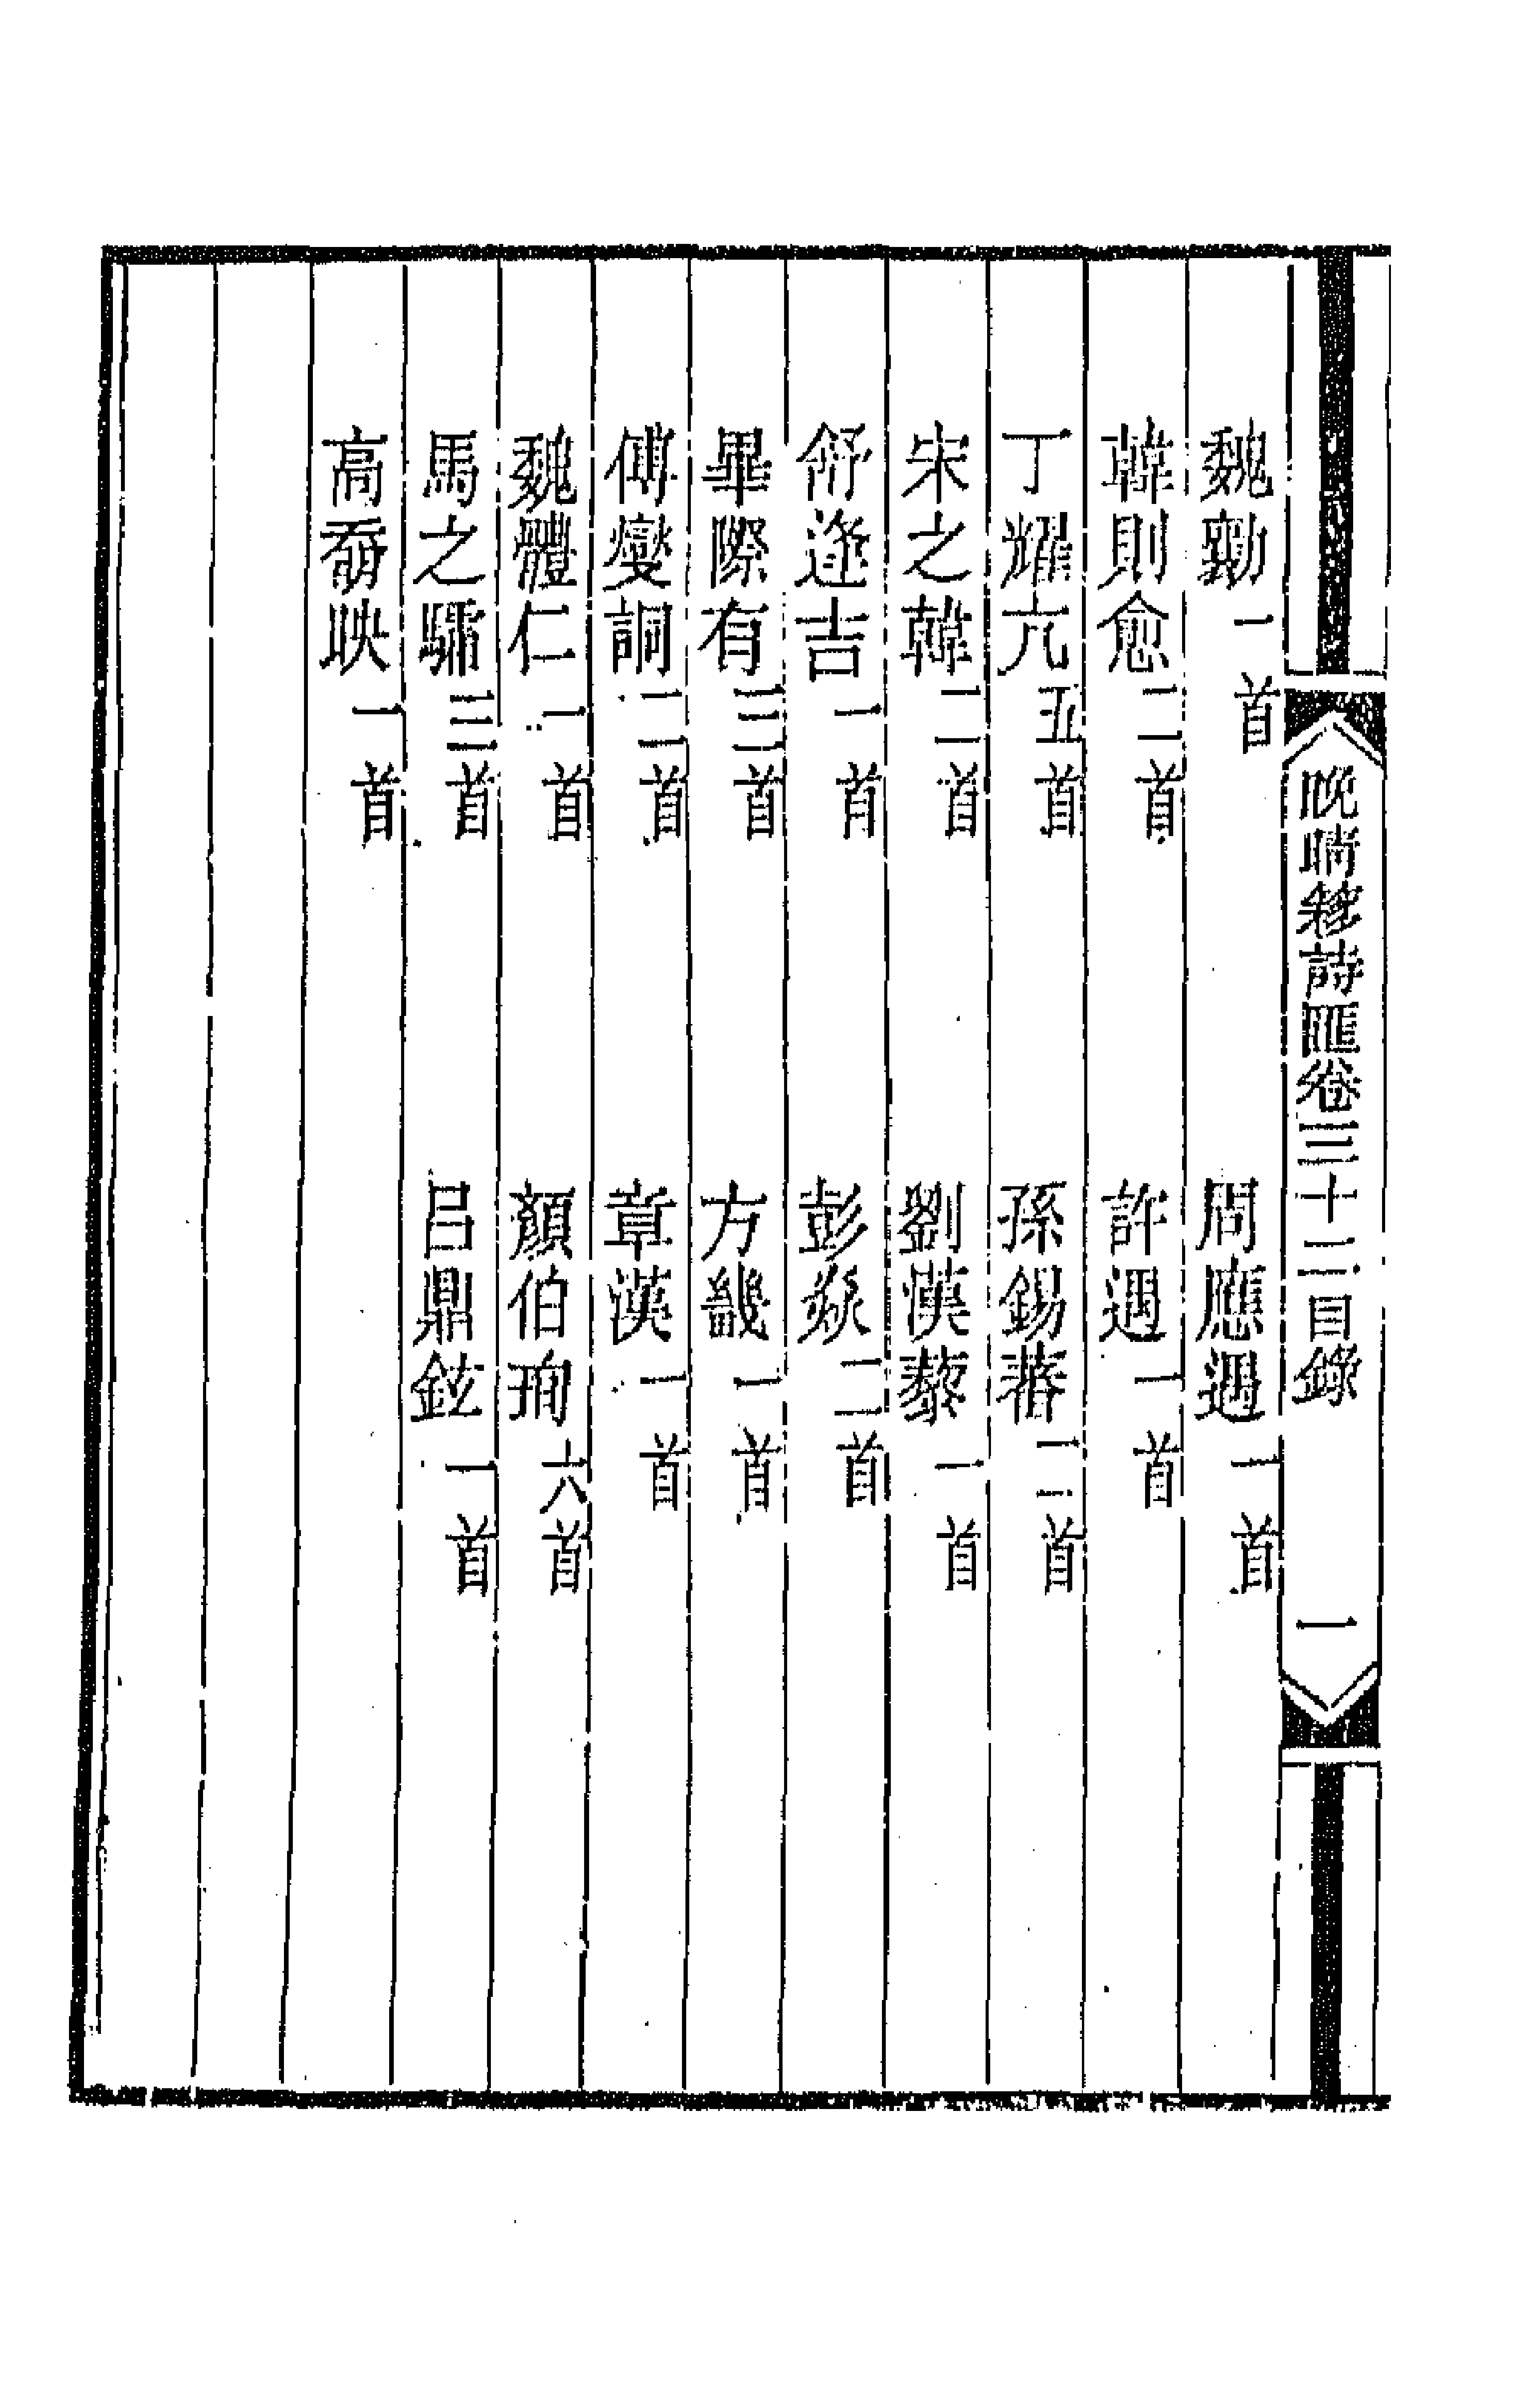 晚晴簃詩匯卷三十二目錄 一
魏勷一首 周應遇一首
韓則愈二首 許遇一首
丁耀亢五首 孫錫蕃二首
宋之韓二首 劉漢藜一首
舒逢吉一首 彭焱二首
畢際有三首 方畿一首
傅燮詷二首 章漢一首
魏體仁一首 顏伯珣六首
馬之驦三首 呂鼎鉉一首
高奣映一首